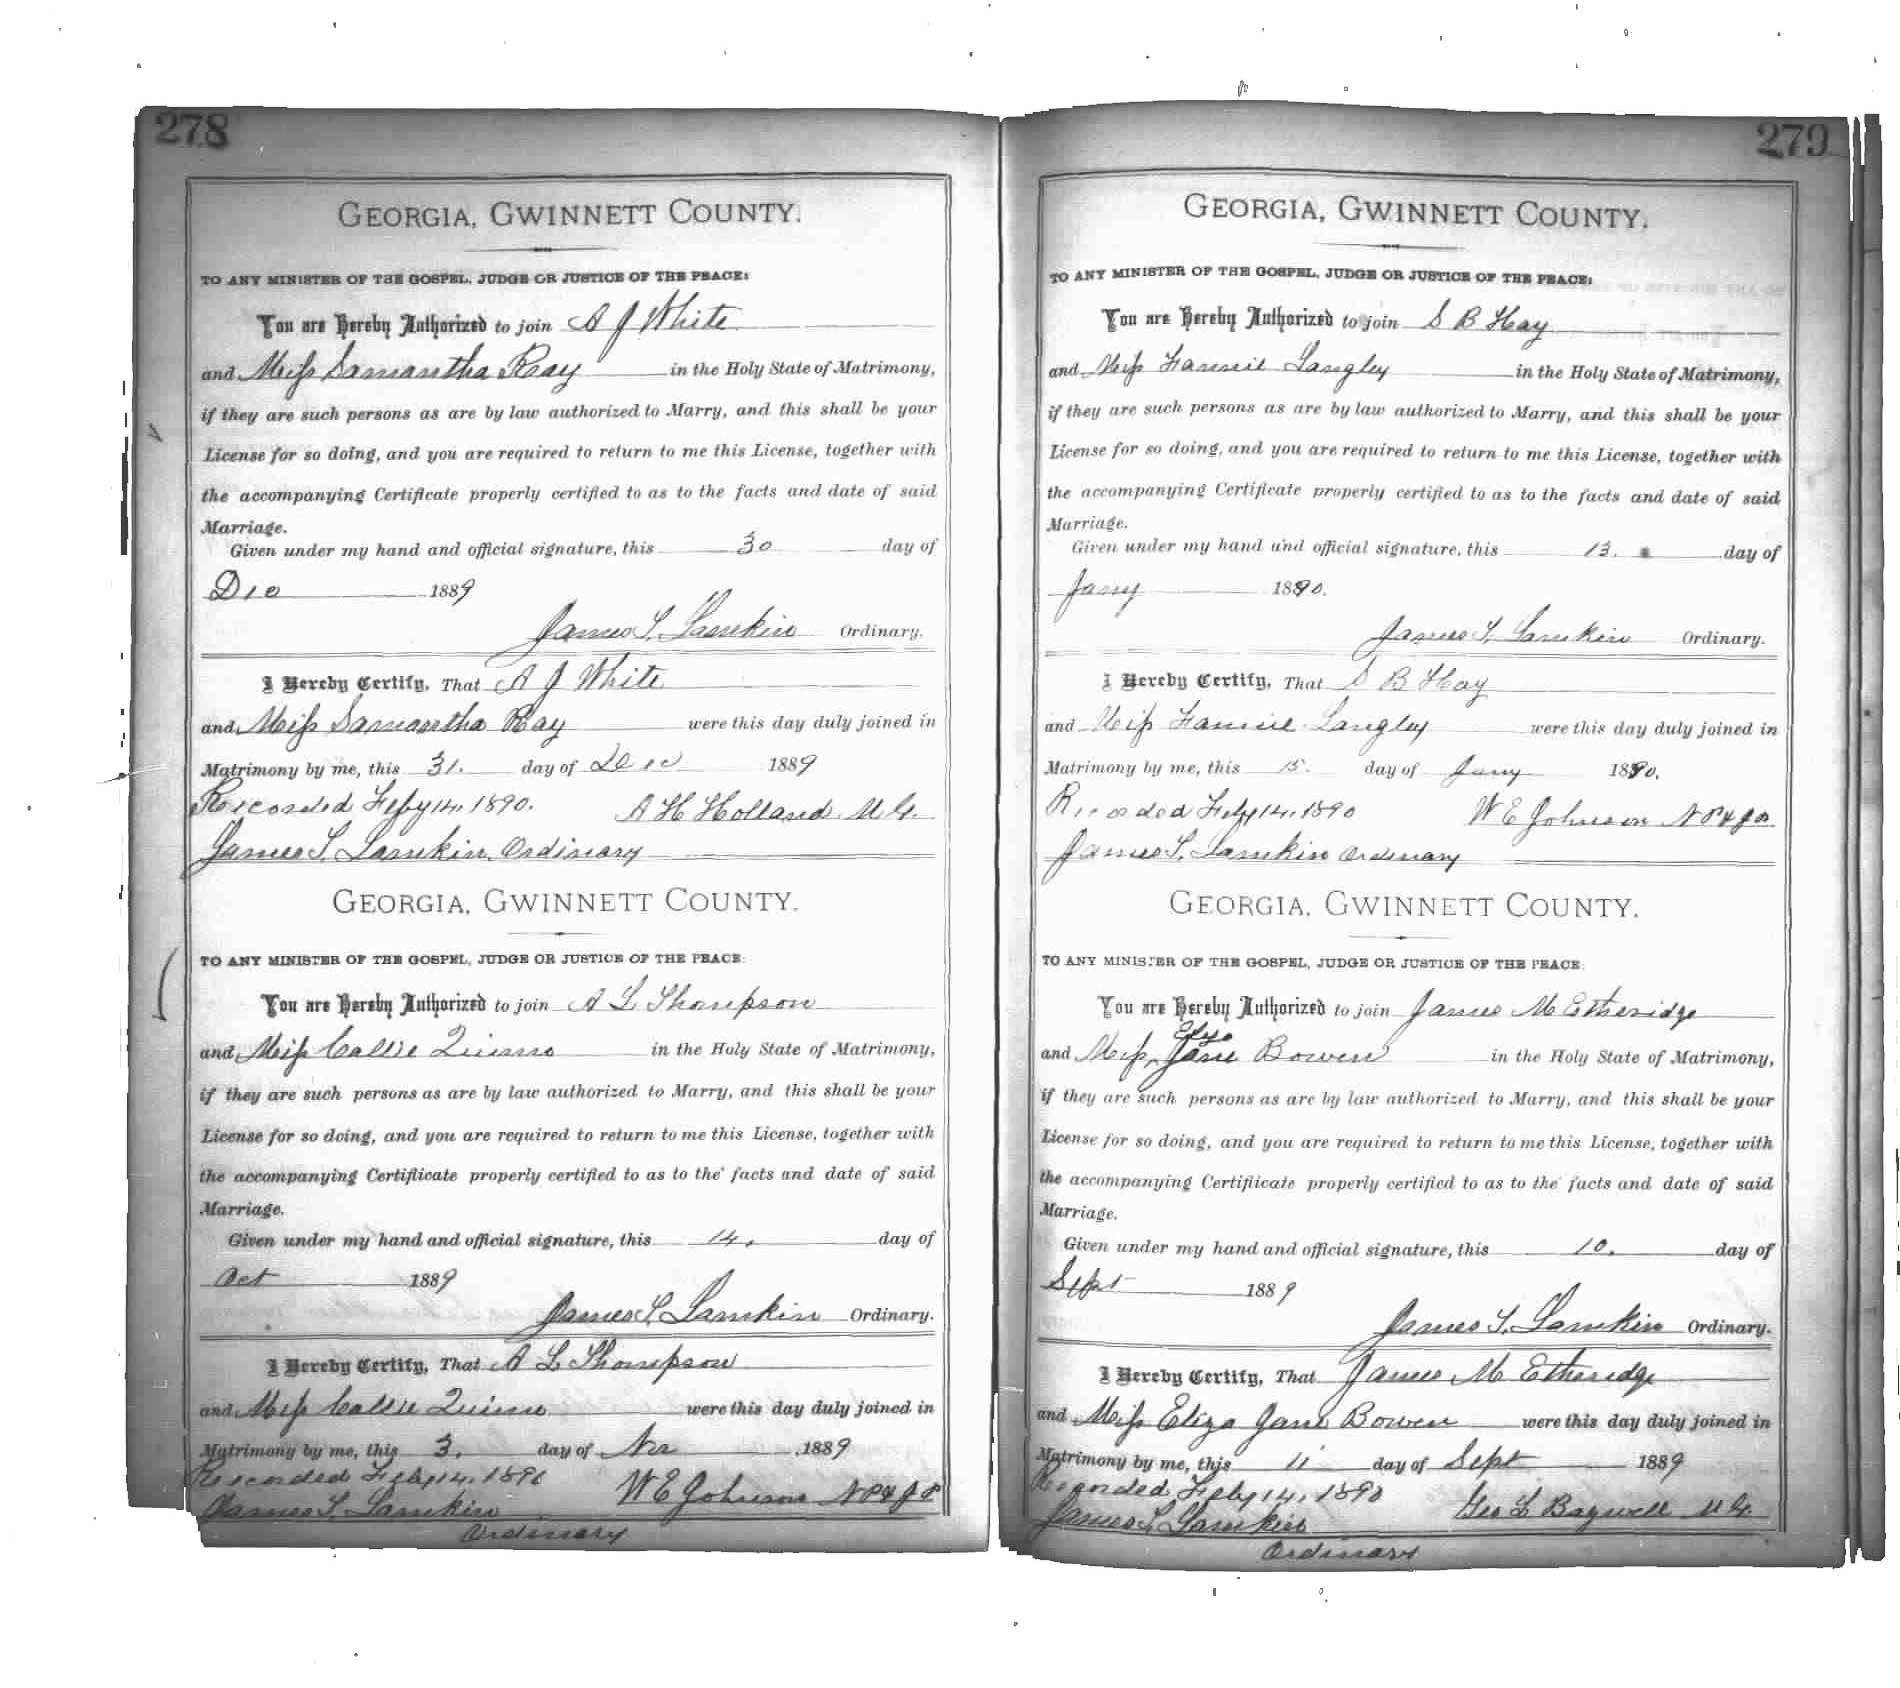 278
GEORGIA, GWINNETT COUNTY.
TO ANY MINISTER OF THE GOSPEL, JUDGE OR JUSTICE OF THE PEACE:
You are Hereby Authorized to join A J White
and Miss Samantha Ray in the Holy State of Matrimony,
if they are such persons as are by law authorized to Marry, and this shall be your
License for so doing, and you are required to return to me this License, together with
the accompanying Certificate properly certified to as to the facts and date of said
Marriage.
Given under my hand and official signature, this 30 day of
Dec 1889
James T. Lamkin Ordinary.
I Hereby Certify, That A J White
and Miss Samantha Ray were this day duly joined in
Matrimony by me, this 31. day of Dec 1889
Recorded Feby 14, 1890. A H Holland M.G.
James T. Lamkin, Ordinary
GEORGIA, GWINNETT COUNTY.
TO ANY MINISTER OF THE GOSPEL, JUDGE OR JUSTICE OF THE PEACE:
You are Hereby Authorized to join A L Thompson
and Miss Callie Quinn in the Holy State of Matrimony,
if they are such persons as are by law authorized to Marry, and this shall be your
License for so doing, and you are required to return to me this License, together with
the accompanying Certifiicate properly certified to as to the facts and date of said
Marriage.
Given under my hand and official signature, this 14. day of
Oct 1889
James T. Lamkin Ordinary.
I Hereby Certify, That A L Thompson
and Miss Callie Quinn were this day duly joined in
Matrimony by me, this 3. day of Nov 1889
Recorded Feby 14, 1890 W E Johnson N P & J P
James T. Lamkin
Ordinary
279
GEORGIA, GWINNETT COUNTY.
TO ANY MINISTER OF THE GOSPEL, JUDGE OR JUSTICE OF THE PEACE:
You are Hereby Authorized to join S B Hay
and Miss Fannie Langley in the Holy State of Matrimony,
if they are such persons as are by law authorized to Marry, and this shall be your
License for so doing, and you are required to return to me this License, together with
the accompanying Certificate properly certified to as to the facts and date of said
Marriage.
Given under my hand and official signature, this 13. day of
Jany 1890.
James T. Lamkin Ordinary.
I Hereby Certify, That S B Hay
and Miss Fannie Langley were this day duly joined in
Matrimony by me, this 15. day of Jany 1890.
Recorded Feby 14, 1890 W E Johnson N P & J P
James T. Lamkin Ordinary
GEORGIA, GWINNETT COUNTY.
TO ANY MINISTER OF THE GOSPEL, JUDGE OR JUSTICE OF THE PEACE:
You are Hereby Authorized to join James M Etheridge
and Miss Jane Bowen in the Holy State of Matrimony,
if they are such persons as are by law authorized to Marry, and this shall be your
License for so doing, and you are required to return to me this License, together with
the accompanying Certifiicate properly certified to as to the facts and date of said
Marriage.
Given under my hand and official signature, this 10. day of
Sept 1889
James T. Lamkin Ordinary.
I Hereby Certify, That James M Etheridge
and Miss Eliza Jane Bowen were this day duly joined in
Matrimony by me, this 11 day of Sept 1889
Recorded Feby 14, 1890 Geo L Bagwell M.G.
James T. Lamkin
Ordinary